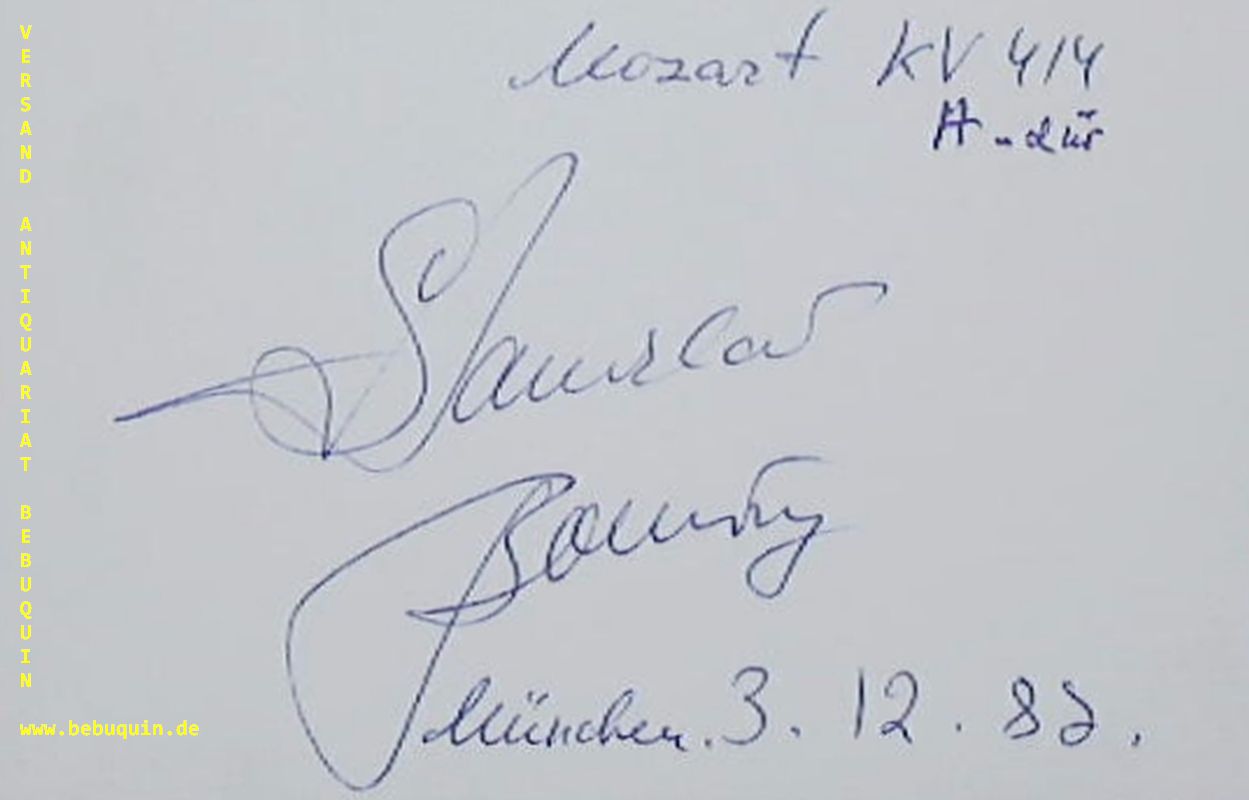 Mozart KV 414
A-dur
Stanislav
Bunin
München. 3. 12. 88.
VERSAND ANTIQUARIAT BEBUQUIN
www.bebuquin.de